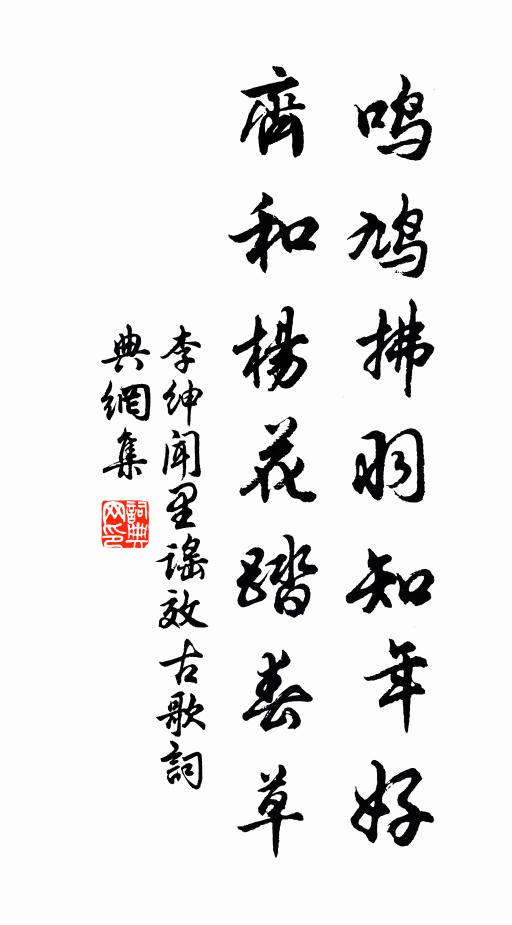 鸣鸠拂羽知年好
齊和楊花踏春草
李绅闻里謠效古歌詞
典網集
詞典网印